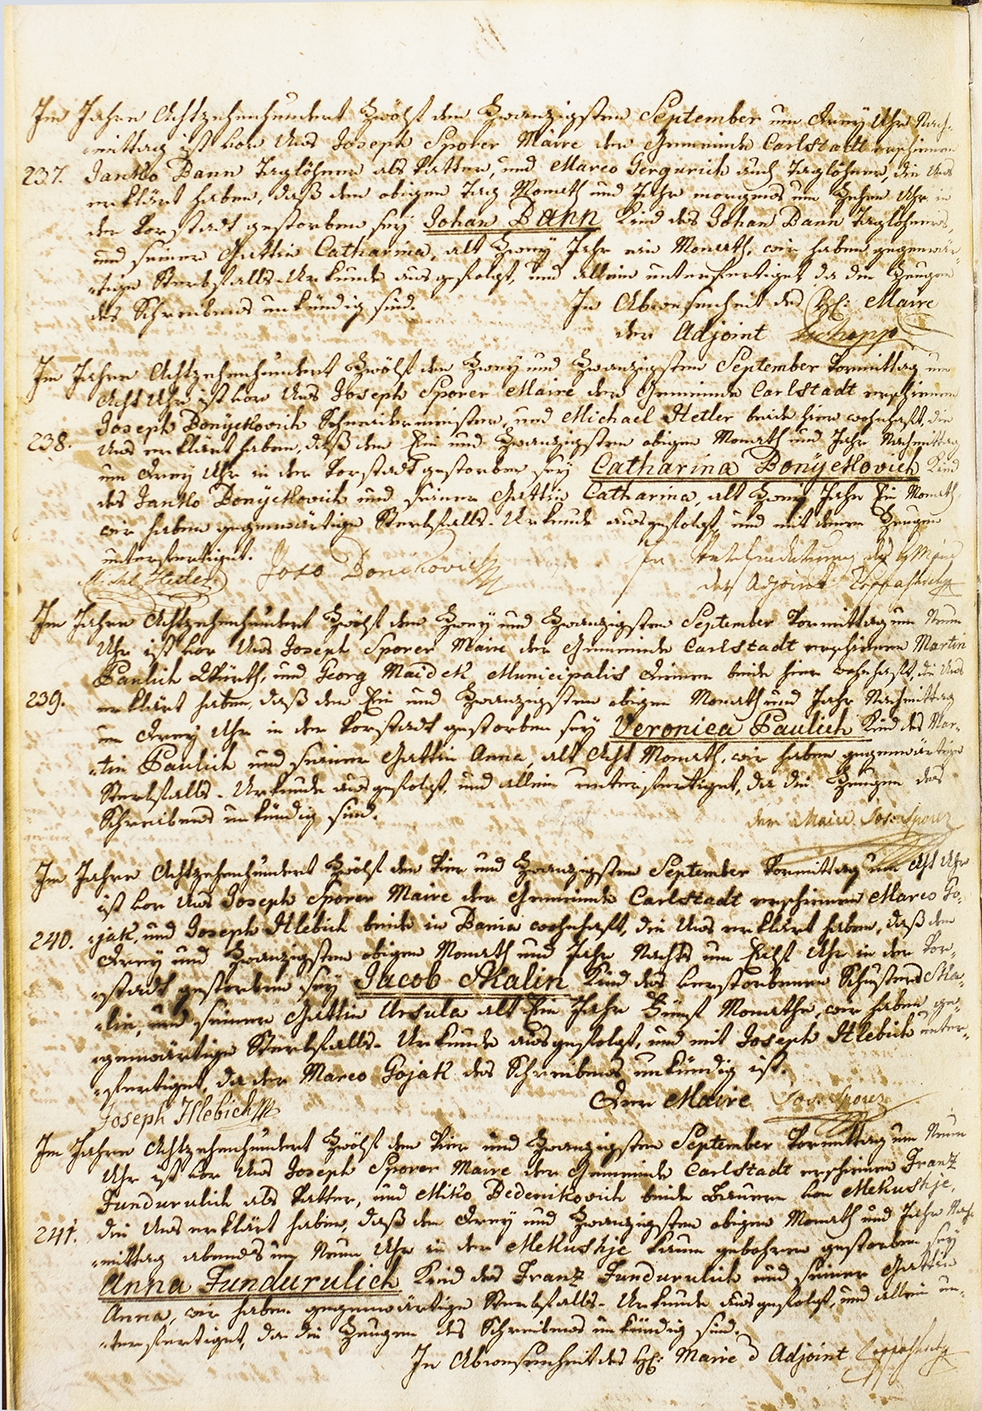 Im Jahre Achtzehenhundert Zwölf den Zwanzigsten September um Drey Uhr Nach-
mittag ist vor Uns Joseph Sporer Maire der Gemeinde Carlstadt erschienen
237. Janko Dann Taglöhner als Vatter, und Marco Gergurich auch Taglöhner, die Uns
erklärt haben, daß den obigen Tag Monath und Jahr morgens um Zehen Uhr in
der Vorstadt gestorben sey Johan Dann Kind des Johan Dann Taglöhners,
und seiner Gattin Catharina, alt Zwey Jahr ein Monath, wir haben gegenwär-
tige Sterbfalls-Urkunde ausgefolgt, und allein unterfertiget, da die Zeugen
des Schreibens unkündig sind. In Abwesenheit des H: Maire
der Adjoint
Im Jahre Achtzehenhundert Zwölf den Zwey und Zwanzigsten September Vormittag um
Acht Uhr ist vor Uns Joseph Sporer Maire der Gemeinde Carlstadt erschienen
Joseph Donyetlovich Schneidermeister, und Michael Hetler beide hier wohnhaft, die
238. Uns erklärt haben, daß den Ein und Zwanzigsten obigen Monath und Jahr Nachmittag
um Drey Uhr in der Vorstadt gestorben sey Catharina Donyetlovich Kind
des Janko Donyetlovich und seiner Gattin Catharina, alt Zwey Jahr Ein Monath
wir haben gegenwärtige Sterbfalls-Urkunde ausgefolgt, und mit denen Zeugen
unterfertiget.
der Adjoint
Im Jahre Achtzehenhundert Zwölf den Zwey und Zwanzigsten September Vormittag um Neun
Uhr ist vor Uns Joseph Sporer Maire der Gemeinde Carlstadt erschienen Martin
Paulich Wirth, und Georg Maidek Municipalis Diener beide hier wohnhaft, die Uns
239. erklärt haben, daß den Ein und Zwanzigsten obigen Monath und Jahr Nachmittag
um Drey Uhr in der Vorstadt gestorben sey Veronica Paulich Kind des Mar-
tin Paulich und seiner Gattin Anna, alt Acht Monath, wir haben gegenwärtige
Sterbfalls-Urkunde ausgefolgt, und allein unterfertiget, da die Zeugen des
Schreibens unkündig sind. der Maire Jos. Sporer
Im Jahre Achtzehenhundert Zwölf den Vier und Zwanzigsten September Vormittag um Acht Uhr
ist vor Uns Joseph Sporer Maire der Gemeinde Carlstadt erschienen Marco Go-
240. jak, und Joseph Hlebich beide in Bania wohnhaft, die Uns erklärt haben, daß den
Drey und Zwanzigsten obigen Monath und Jahr Nachts um Eilf Uhr in der Vor-
stadt gestorben sey Jacob Skalin Kind des verstorbenen Schusters Ska-
lin, und seiner Gattin Ursula alt Ein Jahr Fünf Monathe, wir haben ge-
genwärtige Sterbfalls-Urkunde ausgefolgt, und mit Joseph Hlebich unter-
fertiget, da der Marco Gojak des Schreibens unkündig ist.
Joseph Hlebich Der Maire Jos. Sporer
Im Jahre Achtzehenhundert Zwölf den Vier und Zwanzigsten September Vormittag um Neun
Uhr ist vor Uns Joseph Sporer Maire der Gemeinde Carlstadt erschienen Franz
Fundurulich als Vatter, und Miko Dedenikovich beide Bauern von Mekushje,
241. die Uns erklärt haben, daß den Drey und Zwanzigsten obigen Monath und Jahr Nach-
mittag abends um Neun Uhr in der Mekushje kaum gebohren gestorben sey
Anna Fundurulich Kind des Franz Fundurulich und seiner Gattin
Anna, wir haben gegenwärtige Sterbfalls-Urkunde ausgefolgt, und allein un-
terfertiget, da die Zeugen des Schreibens unkündig sind.
In Abwesenheit des H: Maire d Adjoint